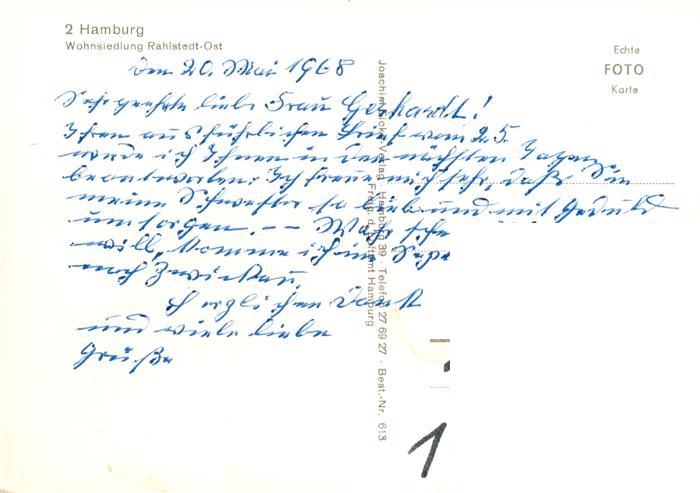 2 Hamburg
Wohnsiedlung Rahlstedt-Ost
Echte
FOTO
Karte
Den 20. Mai 1968
Sehr geehrte liebe Frau Gerhardt!
Ihren ausführlichen Brief vom 2.5.
werde ich Ihnen in den nächsten Tagen
beantworten. Ich freue mich sehr, daß Sie
meine Schwester so lieb und mit Geduld
umsorgen. -- 
will, komme ich im
nach Zwickau.
Herzlichen Dank
und viele liebe
Grüße
Joachim Verlag · Hamburg 39 · Telefon 27 69 27 · Best.-Nr. 613
Freig. d. Hamburg
1